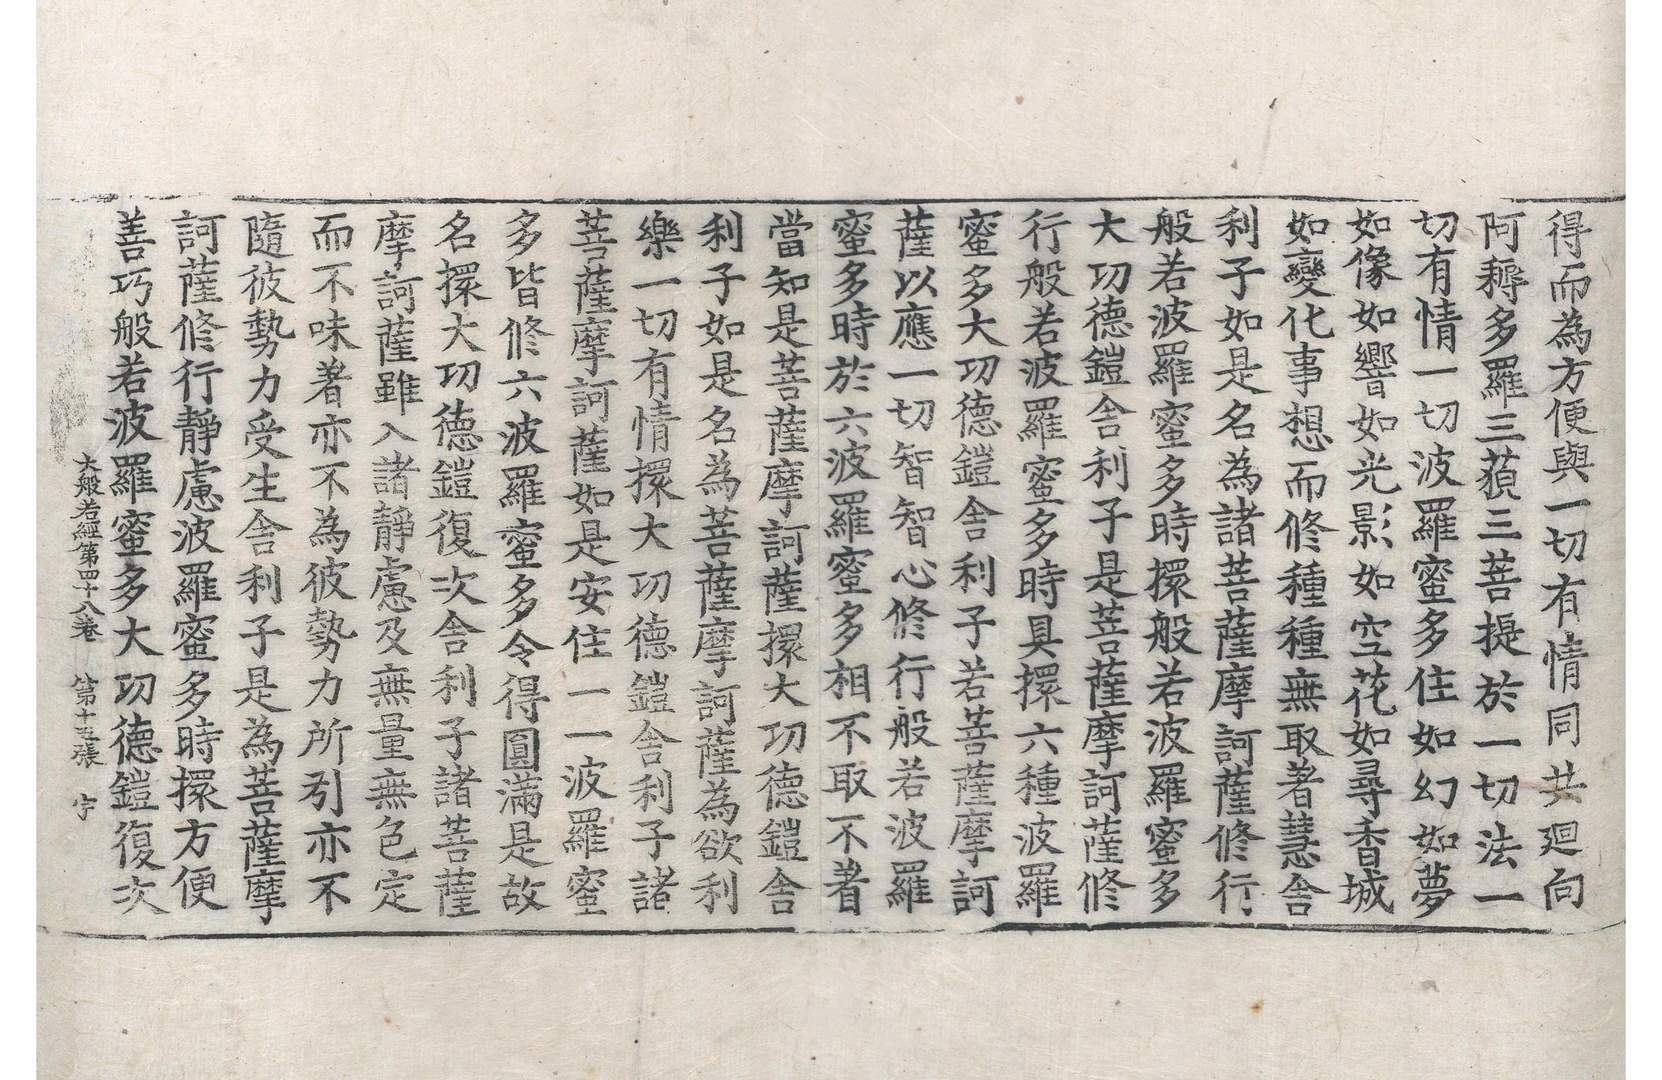 得而為方便與一切有情同共迴向
阿耨多羅三藐三菩提於一切法一
切有情一切波羅蜜多住如幻如夢
如像如響如光影如空花如尋香城
如變化事想而修種種無取著慧舍
利子如是名為諸菩薩摩訶薩修行
般若波羅蜜多時擐般若波羅蜜多
大功德鎧舍利子是菩薩摩訶薩修
行般若波羅蜜多時具擐六種波羅
蜜多大功德鎧舍利子若菩薩摩訶
薩以應一切智智心修行般若波羅
蜜多時於六波羅蜜多相不取不著
當知是菩薩摩訶薩擐大功德鎧舍
利子如是名為菩薩摩訶薩為欲利
樂一切有情擐大功德鎧舍利子諸
菩薩摩訶薩如是安住一一波羅蜜
多皆修六波羅蜜多令得圓滿是故
名擐大功德鎧復次舍利子諸菩薩
摩訶薩雖入諸靜慮及無量無色定
而不味著亦不為彼勢力所引亦不
隨彼勢力受生舍利子是為菩薩摩
訶薩修行靜慮波羅蜜多時擐方便
善巧般若波羅蜜多大功德鎧復次
大般若經第四十八卷 第十五張 宇